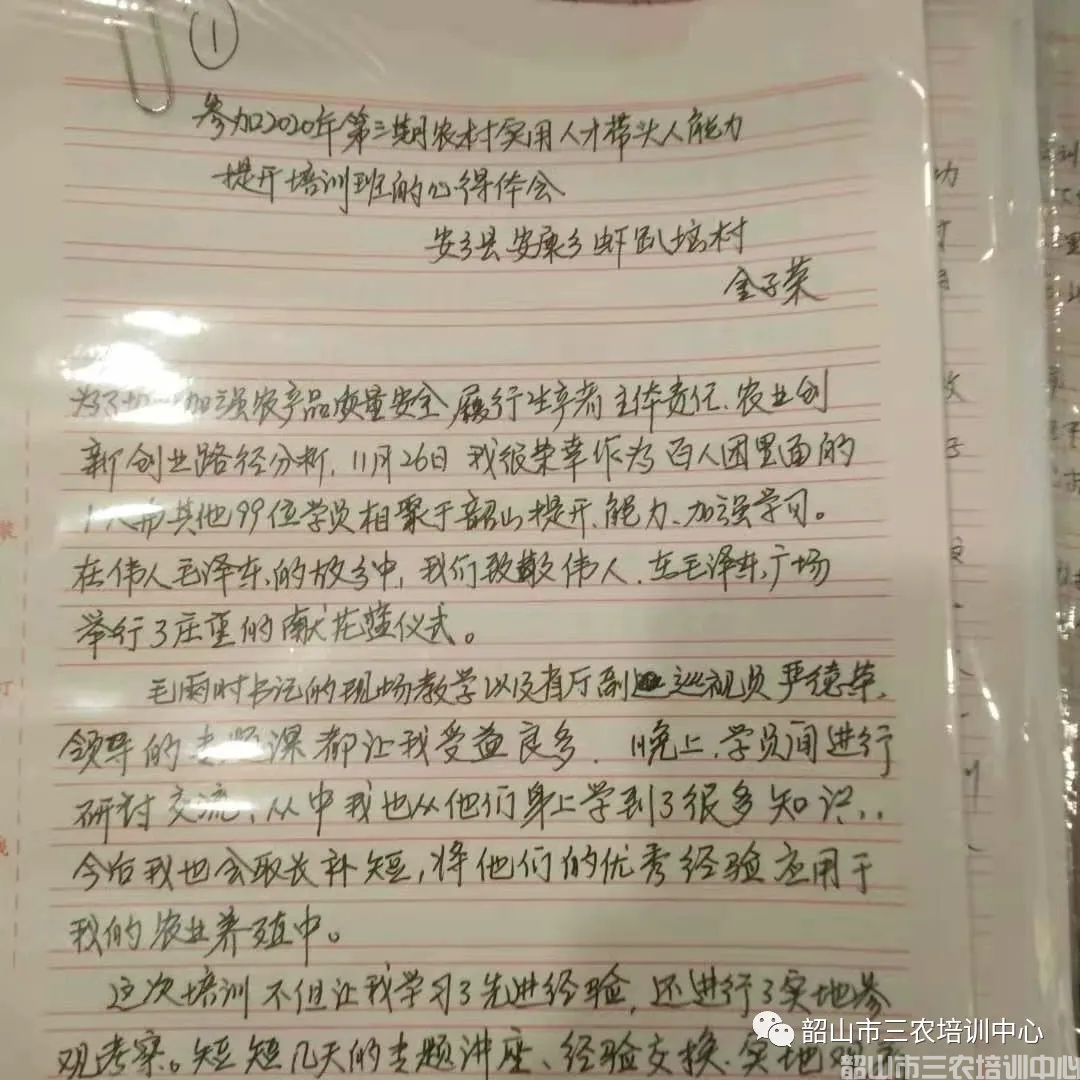 ①
参加2020年第三期农村实用人才带头人能力
提升培训班的心得体会
安乡县安康乡虾趴垴村
金子荣
为了加强农产品质量安全履行生产者主体责任、农业创
新创业路径分析,11月26日我很荣幸作为百人团里面的
1人与其他99位学员相聚于韶山提升、能力、加强学习。
在伟人毛泽东的故乡中,我们致敬伟人,在毛泽东广场
举行了庄重的献花篮仪式。
毛雨时书记的现场教学以及省厅副巡视员严德荣,
领导的专题课都让我受益良多,晚上,学员间进行
研讨交流,从中我也从他们身上学到了很多知识..
今后我也会取长补短,将他们的优秀经验应用于
我的农业养殖中。
这次培训不但让我学习了先进经验,还进行了实地参
观考察。短短几天的专题讲座、经验交换、实地
韶山市三农培训中心
韶山市三农培训中心